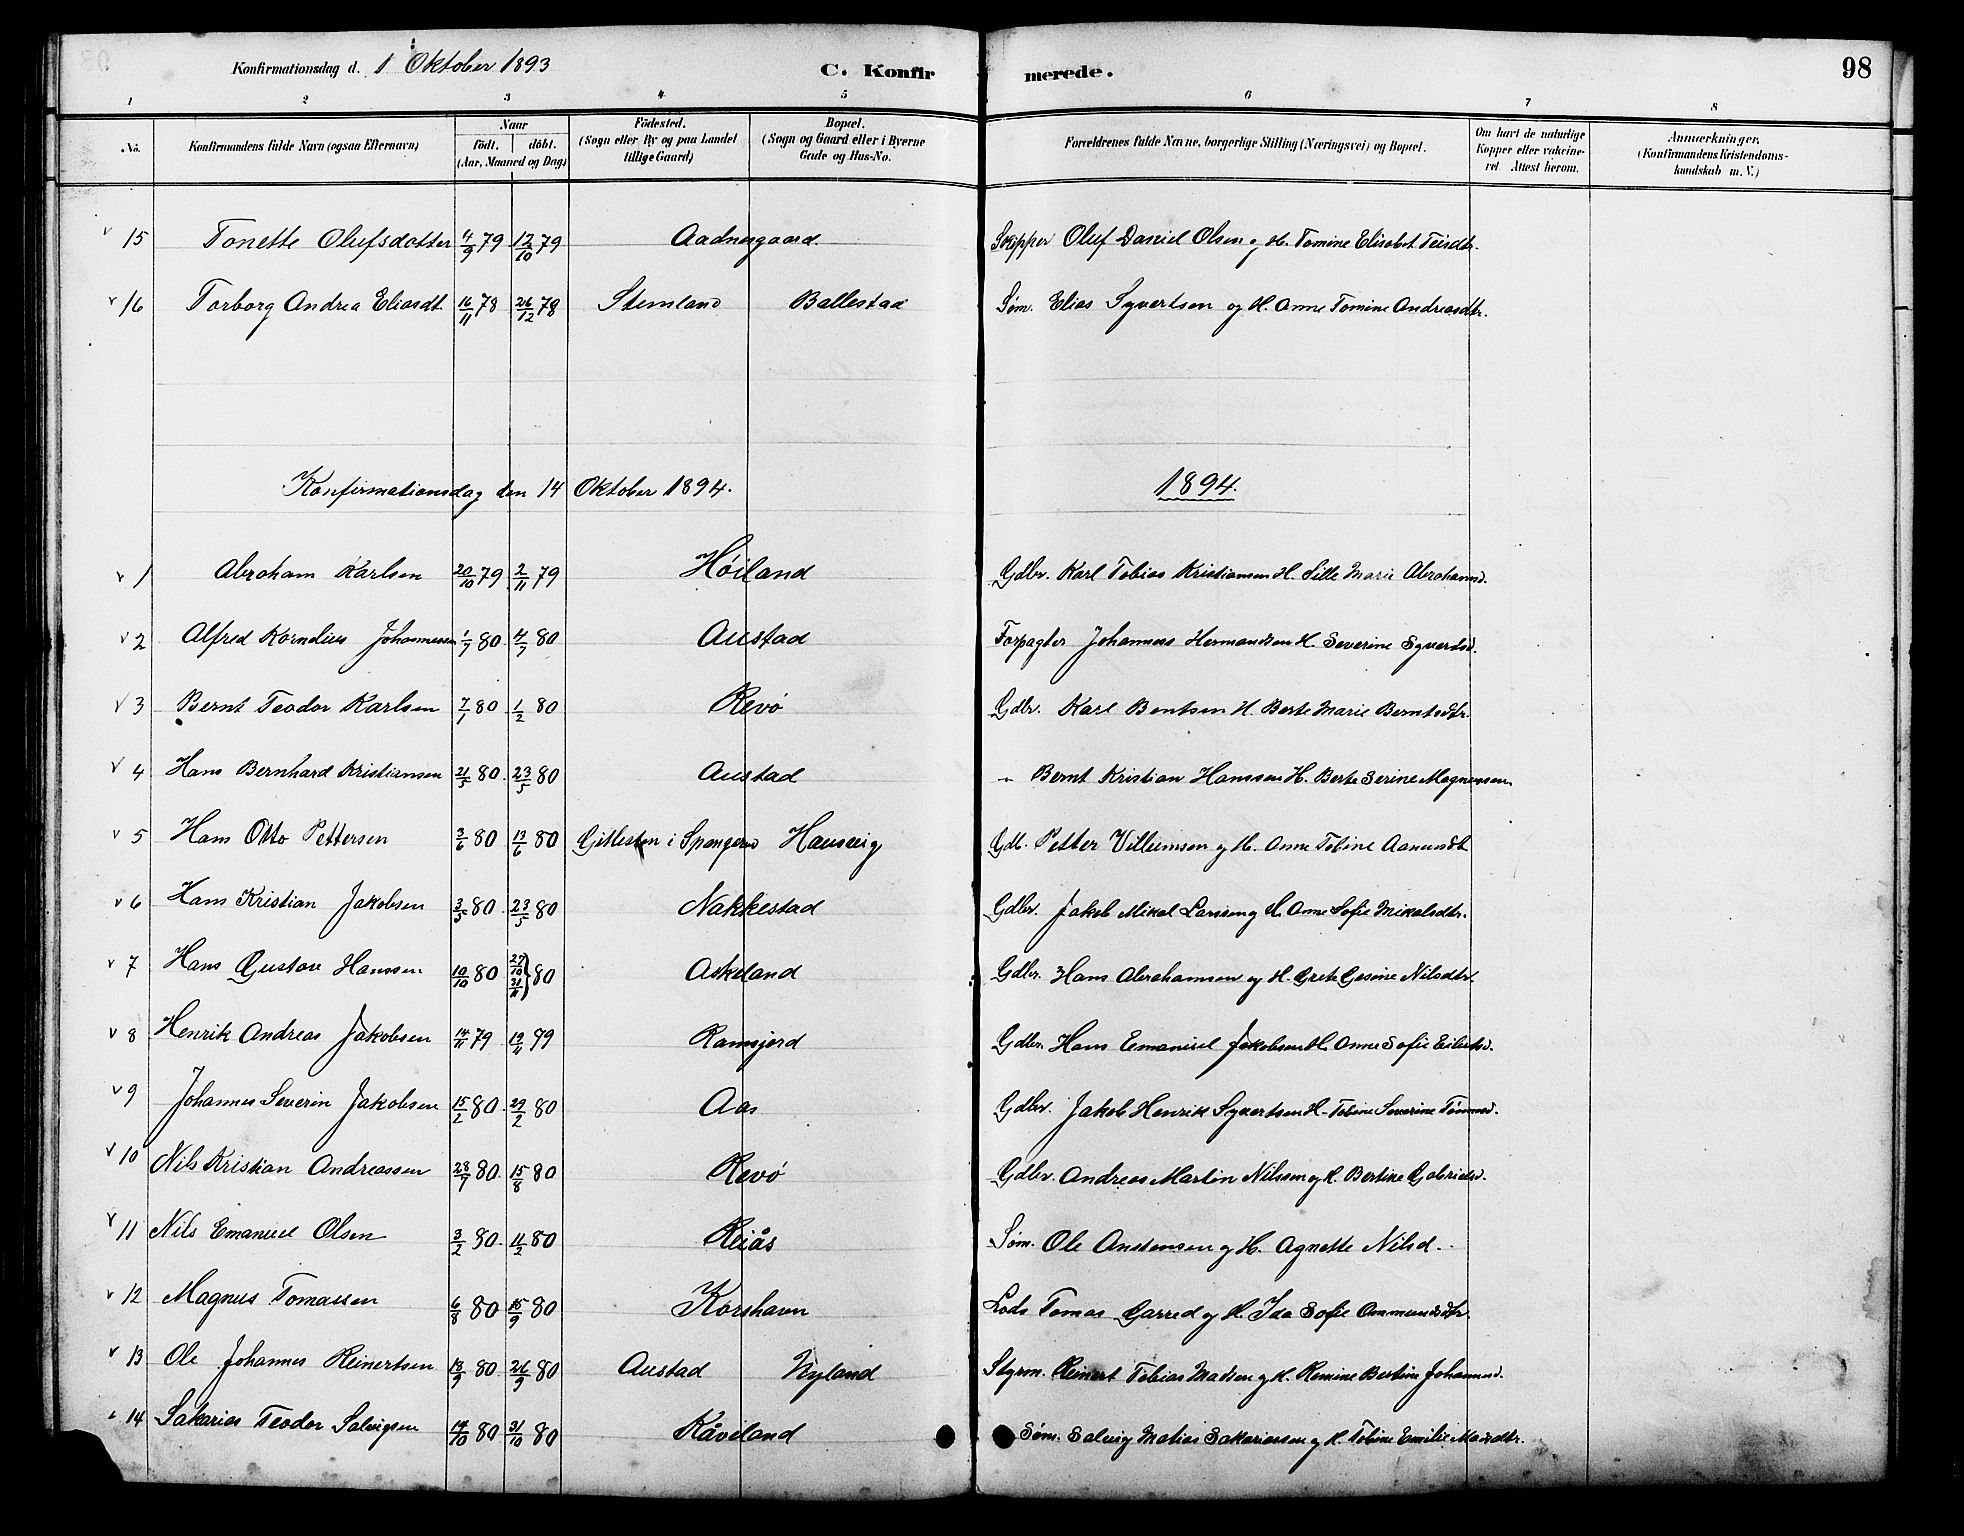 Konfirmationsdag d. 1 Oktober 1893 C. Konfirmerede. 98
1 2 3 4 5 6 7 8
No. Konfirmandens fulde Navn (ogsaa Efternavn) Naar født. døbt. (Aar, Maaned og Dag) Fødested. (Sogn eller By og paa Landet tillige Gaard) Bopæl. (Sogn og Gaard eller i Byerne Gade og Hus-No. Forældrenes fulde Navne, borgerlige Stilling (Næringsvei) og Bopæl. Om havt de naturlige Kopper eller vakcineret Attest herom. Anmærkninger, (Konfirmandens Kristendomskundskab m. V.)
v 15 Tonette Olufsdatter 4/9 79 12/10 79 Aadnesgaard Skipper Oluf Daniel Olsen og H. Tomine Elisabet Teisdtr.
v 16 Torborg Andrea Eliasdt. 16/11 78 26/12 78 Stemland Ballestad Søm. Elias Syvertsen og H. Anne Tomine Andreasdtr.
Konfirmationsdag den 14 Oktober 1894. 1894.
v 1 Abraham Karlsen 20/10 79 2/11 79 Høiland Gdbr. Karl Tobias Kristiansen H. Sille Marie Abrahamsd.
v 2 Alfred Kornelius Johannessen 1/7 80 4/7 80 Austad Forpagter Johannes Hermandsen H. Severine Syvertsd.
v 3 Bernt Teodor Karlsen 7/1 80 1/2 80 Revø Gdbr. Karl Bentsen H. Berte Marie Berntsdtr.
v 4 Hans Bernhard Kristiansen 21/5 80 23/5 80 Austad " Bernt Kristian Hanssen H. Berte Serine Magnussen.
v 5 Hans Otto Pettersen 3/6 80 13/6 80 Gitlesten i Spangerei Hausvig Gdb. Petter Villumsen og H. Anne Tobine Aanensdt.
v 6 Hans Kristian Jakobsen 3/5 80 23/5 80 Nakkestad Gdbr. Jakob Mikal Larssen og H. Anne Sofie Mikalsdtr.
v 7 Hans Gustav Hanssen 10/10 80 27/10 21/11 } 80 Askeland Gdbr. Hans Abrahamsen og H. Grete Gesine Nilsdtr.
v 8 Henrik Andreas Jakobsen 14/11 79 19/11 99 Ramsjord Gdbr. Hans Emanuel Jakobsen H. Anne Sofie Eilertsd.
v 9 Johannes Severin Jakobsen 15/2 80 29/2 80 Aas Gdbr. Jakob Henrik Syvertsen H. Tobine Severine Tønnesd.
v 10 Nils Kristian Andreassen 28/7 80 15/8 80 Revø Gdbr. Andreas Martin Nilssen og H. Bertine Gabrielsd.
v 11 Nils Emanuel Olsen 3/2 80. 11/2 80 Reiås Søm. Ole Anstensen og H. Agnette Nilsd.
v 12 Magnus Tomassen 6/8 80 15/9 80 Korshavn Lods Tomas Garred og H. Ida Sofie Ommundsdtr.
v 13 Ole Johannes Reinertsen 13/9 80 26/9 80 Austad Nyland Styrm. Reinert Tobias Madsen og H. Remine Bertine Johannesd.
14 Sakarias Teodor Salvigsen 14/10 80 31/10 80 Kåveland Søm. Salvig Matias Sakariassen og H. Tobine Emilie Madsdtr.